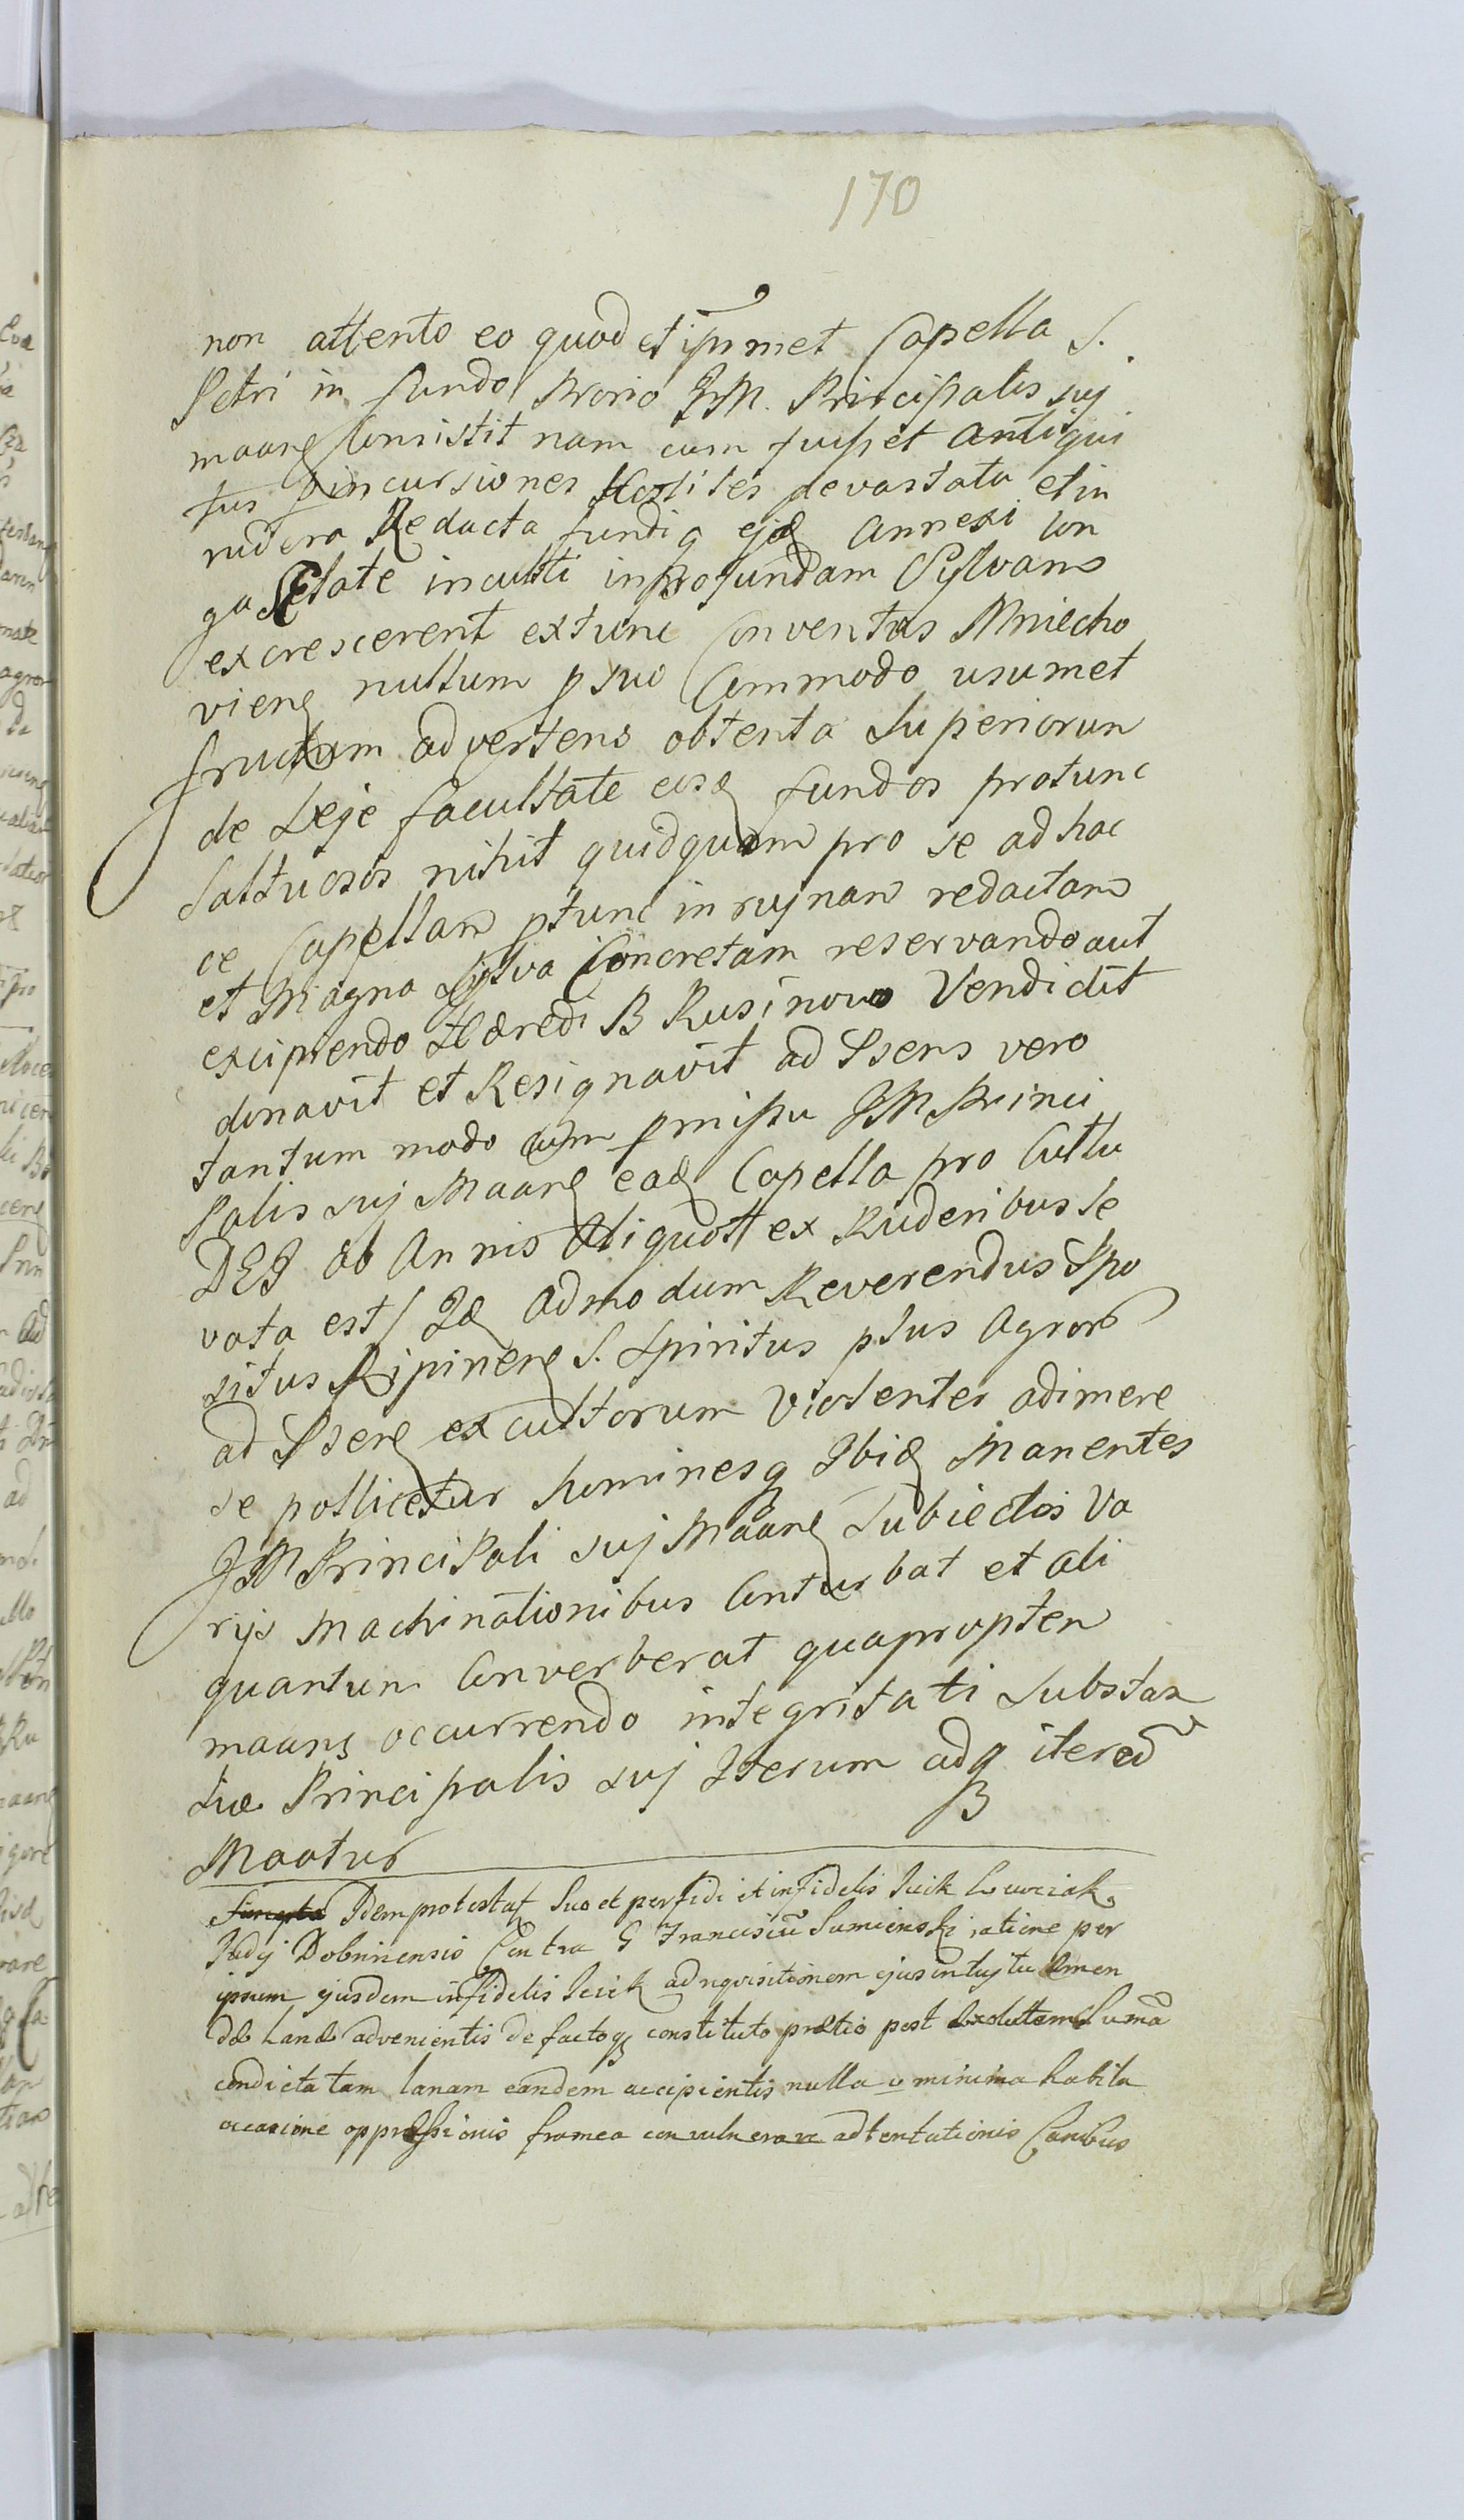 170
non attento eo quod et ipsamet Capella S.
Petri in fundo Prorio JM. Principalis suj
maang Consistit nam cum fuisset antiqui
tus p incursiones Hostiles devastata et in
rudera Redacta fundi q ejd annexi lon
ga Aetate inculti in profundam Sylvam
excrescerent extunc Conventus Mniecho
vieng nullum p suo Commodo usumet
fructum advertens obtenta Superiorum
de Leje facultate eosd fundos protunc
Saltuosos nihil quidquam pro se ad hac
ce Capellam ptunc in rujnam redactam
et Magna Sylva Concretam reservando aut
excipiendo Haeredi B Rusinowo Vendidit
donavit et Resignavit ad Psens vero
tantum modo cum pmissu JM Princi
Palis suj Maang ead Capella pro Cultu
DEJ ab Annis Aliquott ex Ruderibus le
vata est / Id admodum Reverendus Ppo
situs Ripineng S. Spiritus plus Agror
ad Pseng excultorum violenter adimere
se pollicetur hominesq Ibid Manentes
JM Principali suj Maang Subiectos Va
rijs Machinationibus Conturbat et ali
quantum Converberat quapropter
maans occurrendo integritati Substan
tiae Principalis suj Iterum adq itered
B
Maatur
Idem protestat Suo et perfidi et infidelis Icik Lewciak
Judej Dobrinensis Contra G Franciscum Sumienski ratione per
ipsum ejusdem infidelis Icick adrequisitionem ejus intujtu emen
dae Lanae advenientis de factoq constituto praetio post Exolutam Suma
condictatam lanam eandem accipientis nulla minima habita
occasione oppressionis framea convulnerare adtentationis Canibus